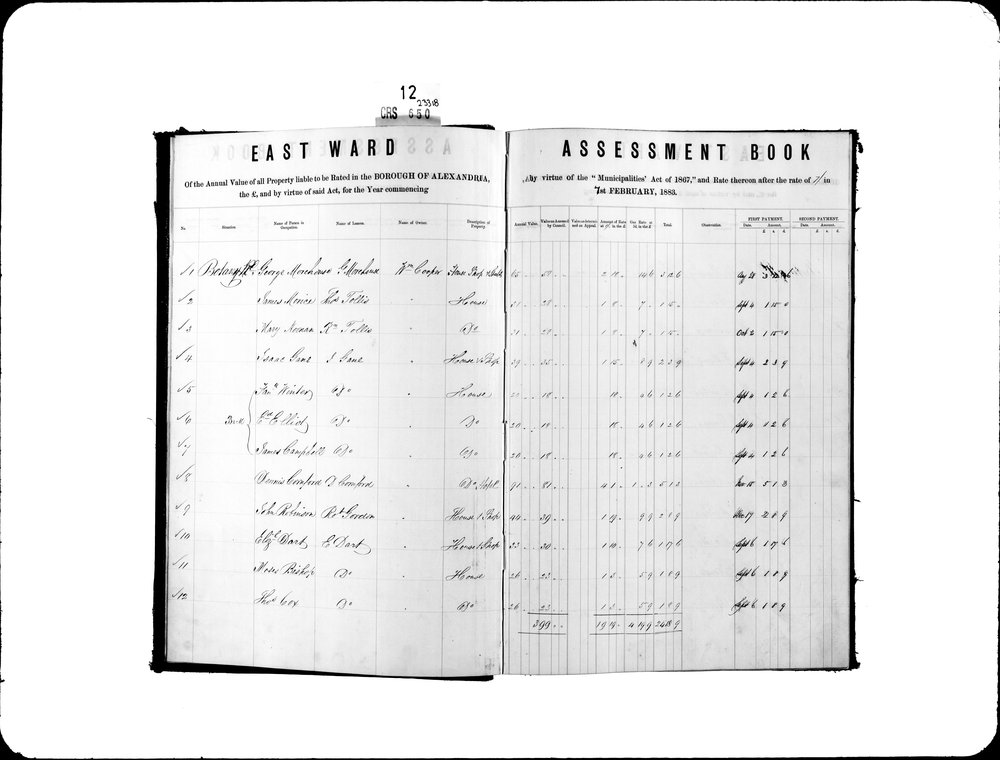 12
23318
CRS 650
EAST WARD
Of the Annual Value of all Property liable to be Rated in the BOROUGH OF ALEXANDRIA,
the £, and by virtue of said Act, for the Year commencing
No Situation Name of Person in Occupation. Name of Lessee. Name of Owner. Description of Property
1 Botany Rd George Morehouse G Morehouse Wm Cooper House Shop
2 James Thos Tollis House
3 Mary Rd Tollis Do
4 Isaac Gans I Gans House & Shop
5 Winter Do House
6 Elliot Do Do
7 James Campbell Do Do
8 Dennis Comford D Comford Do
9 John Robinson Rt Gordon House & Shop
10 Eliz Dart E Dart House & Shop
11 Moses Bishop Do House
12 Thos Cox Do Do
ASSESSMENT BOOK
by virtue of the "Municipalities' Act of 1867," and Rate thereon after the rate of 1/ in
1st FEBRUARY, 1883.
Annual Value. Value as Assessed by Council. Value as determined on Appeal. Amount of Rate at in the £ Gas Rate at 3d. in the £ Total. Observation. FIRST PAYMENT. SECOND PAYMENT.
Date. Amount. Date. Amount.
£ s d £ s d
65 58 2 18 14 6 3 12 6 Aug 28
31 28 1 8 7 1 15 Sept 4 1 15 0
31 28 1 8 7 1 15 Oct 2 1 15 0
39 35 1 15 8 9 2 3 9 Sept 4 2 3 9
20 18 18 4 6 1 2 6 Sept 4 1 2 6
20 18 18 4 6 1 2 6 Sept 4 1 2 6
20 18 18 4 6 1 2 6 Sept 4 1 2 6
91 81 4 1 1 3 5 1 3 15 5 1 3
44 39 1 19 9 9 2 8 9 2 8 9
33 30 1 10 7 6 1 17 6 Sept 6 1 17 6
26 23 1 3 5 9 1 8 9 Sept 6 1 8 9
26 23 1 3 5 9 1 8 9 Sept 6 1 8 9
399 19 19 4 19 9 24 18 9